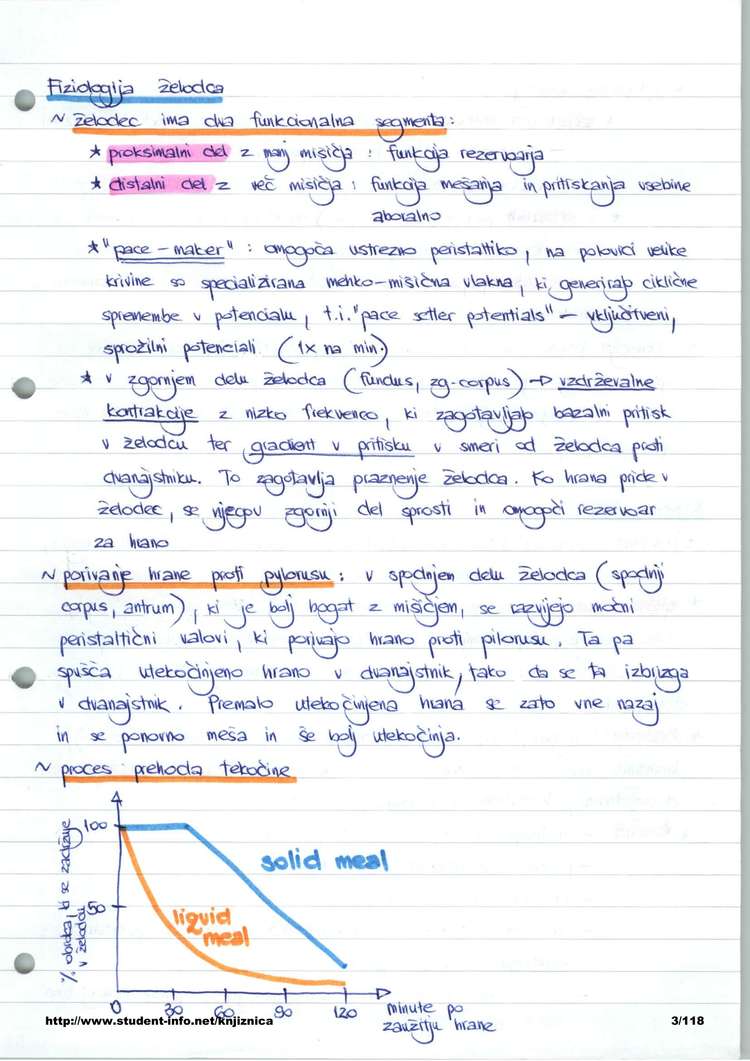 Fiziologija želodca
~ želodec ima dva funkcionalna segmenta:
* proksimalni del z manj mišičja : funkcija rezervoarja
* distalni del z več mišičja : funkcija mešanja in pritiskanja vsebine
aboralno
* "pace-maker" : omogoča ustrezno peristaltiko, na polovici velike
krivine so specializirana mehko-mišična vlakna, ki generirajo ciklične
spremembe v potencialu, t.i. "pace setler potentials" - vključitveni,
sprožilni potenciali (1x na min.)
* v zgornjem delu želodca (fundus, zg-corpus) → vzdrževalne
kontrakcije z nizko frekvenco, ki zagotavljajo bazalni pritisk
v želodcu ter gradient v pritisku v smeri od želodca proti
dvanajstniku. To zagotavlja praznenje želodca. Ko hrana pride v
želodec, se njegov zgornji del sprosti in omogoči rezervoar
za hrano
~ porivanje hrane proti pylorusu : v spodnjem delu želodca (spodnji
corpus, antrum), ki je bolj bogat z mišičjem, se razvijejo močni
peristaltični valovi, ki porivajo hrano proti pilorusu. Ta pa
spušča utekočinjeno hrano v dvanajstnik, tako da se ta izbrizga
v dvanajstnik. Premalo utekočinjena hrana se zato vrne nazaj
in se ponovno meša in še bolj utekočinja.
~ proces prehoda tekočine
% obroka, ki se zadržuje
v želodcu
100
50
solid meal
liquid
meal
0 30 60 90 120
minute po
zaužitju hrane
http://www.student-info.net/knjiznica
3/118